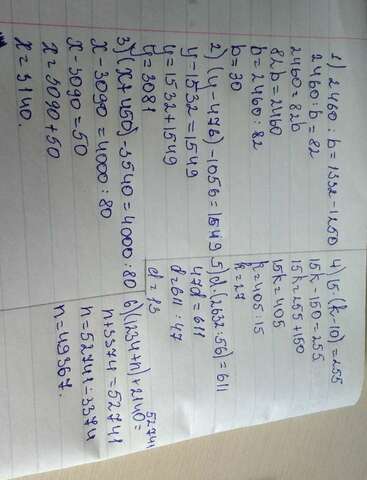 1) 2460 : b = 1332 - 1250
2460 : b = 82
2460 = 82b
82b = 2460
b = 2460 : 82
b = 30
2) (y - 476) - 1056 = 1549
y - 1532 = 1549
y = 1532 + 1549
y = 3081
3) (x + 450) - 3540 = 4000 : 80
x - 3090 = 4000 : 80
x - 3090 = 50
x = 3090 + 50
x = 3140.
4) 15·(k-10) = 255
15k - 150 = 255
15k = 255 + 150
15k = 405
k = 405 : 15
k = 27
5) d·(2632 : 56) = 611
47d = 611
d = 611 : 47
d = 13
6) (1234 + n) + 2140 =
52741
n + 3374 = 52741
n = 52741 - 3374
n = 49367.